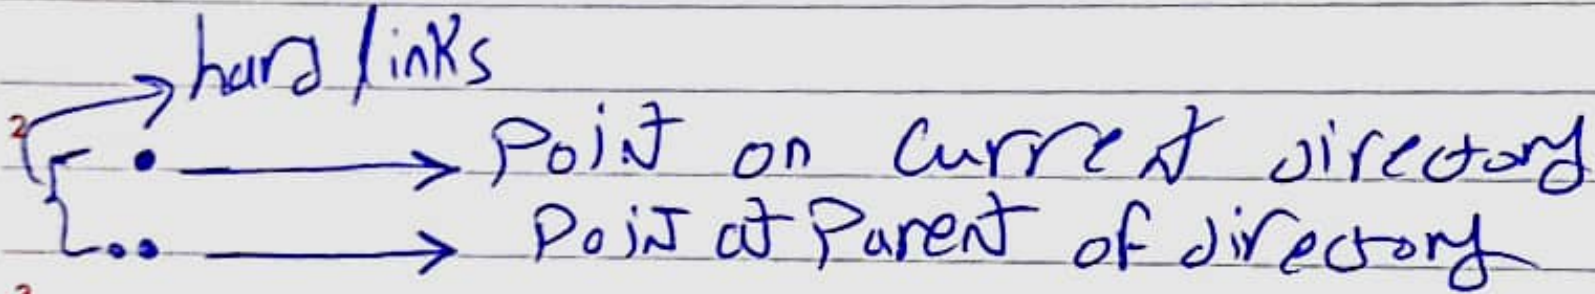 hard links
. → Point on current directory
.. → Point at Parent of directory